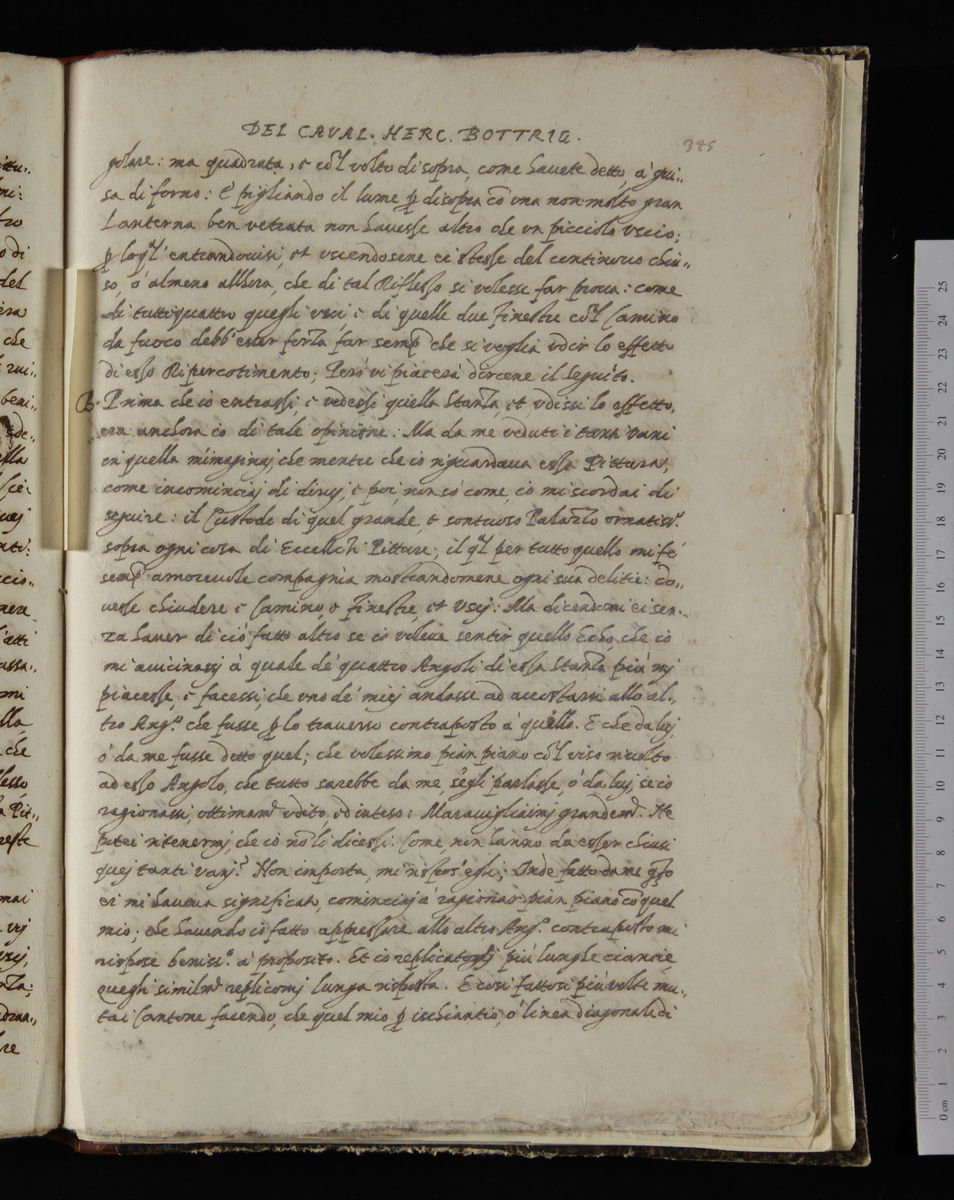 DEL CAVAL. HERC. BOTTRIG.
385
golare: ma quadrata, e cõ'l volto di sopra, come havete detto, à gui„
sa di forno: E' pigliando il lume ꝑ disopra cõ una non molto gran
Lanterna ben vetrata non havesse altro che un picciolo uscio;
ꝑ lo q̃l' entrandovisi, et uscendosene ei stesse del continovo chiu„
so, ò almeno allhora, che di tal Riflesso si volesse far prova: come
di tutti quattro quegli usci, e di quelle due finestre cõ'l Camino
da fuoco debb' esser forza far semp̃ che si voglia udir lo effetto
di esso Ripercotimento; Però vi piacerà dircene il seguito.
B. Prima che io entrassi, e vedessi quella Stanza, et udissi lo effetto,
era anchora io di tale opinione. Ma da me veduti i tanti vani
in quella m'imaginaj che mentre che io riguardava essa Pittura,
come incominciaj di dirvj, e poi, non sò come, io mi scordai di
seguire: il Custode di quel grande, & sontuoso Palazzo ornatiss.º
sopra ogni cosa di Eccell.ti Pitture; il q̃l per tutto quello mi fé
semp̃ amorevole compagnia mostrandomene ogni sua delitie: do„
vesse chiudere e Camino, e finestre, et uscij: Ma dicendomi ei sen„
za haver di ciò fatto altro se io voleva sentir quello Echo, che io
mi avicinassj à quale de' quattro Angoli di essa Stanza più mj
piacesse, e facessi, che uno de' miej andasse ad accostarsi allo al„
tro Ang.º che fusse ꝑ lo traverso contraposto à quello. E che da luj,
ò da me fusse detto quel, che volessimo pian piano cõ'l viso rivolto
ad esso Angolo, che tutto sarebbe da me, s'egli parlasse, ò da luj, se io
ragionassi, ottimam.te udito, ed inteso: Maravigliaimj grandem.te Ne
potei ritenermj che io nõ li dicessi. Come non hanno da esser chiusi
quej tanti vanj? Non importa, mi rispos' egli; Onde fatto da me q̃to
ei mi haveva significato, cominciaj à ragionar pian piano cõ quel
mio; che havendo io fatto appressare allo altro Ang.º contraposto mi
rispose beniss.º à proposito. Et io replicatoglj più lunghe ciancie
quegli similm.te replicomj lunga risposta. E così fattosi più volte mu„
tai Cantone facendo, che quel mio ꝑ ischiancio, ò linea diagonale di